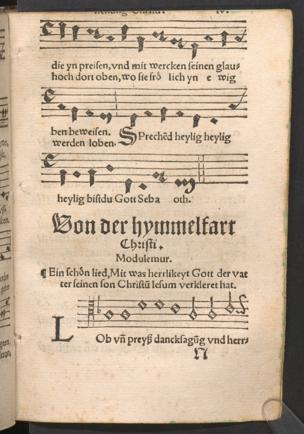 die yn preisen, vnd mit wercken seinen glau-
hoch dort oben, wo sie frö lich yn e wig
ben beweisen. SPrechēd heylig heylig
werden loben.
heylig bistdu Gott Seba oth.
Von der hymmelfart
Christi.
Modulemur.
¶ Ein schön lied, Mit was herrlikeyt Gott der vat
ter seinen son Christū Iesum verkleret hat.
LOb vn̄ preyß dancksagūg vnd herr-
N